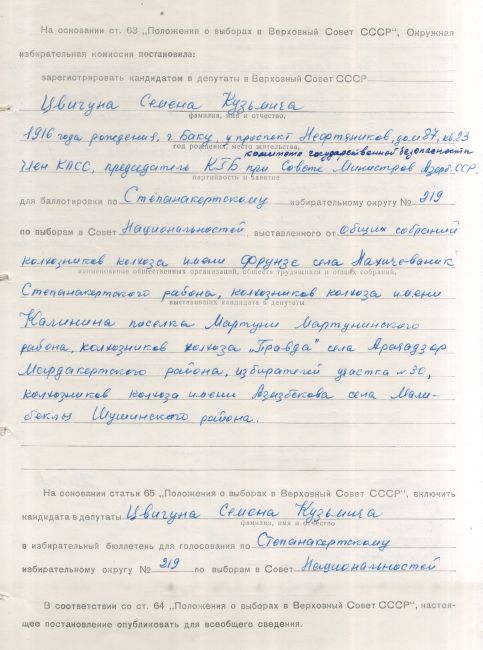 На основании ст. 63 „Положения о выборах в Верховный Совет СССР“, Окружная
избирательная комиссия постановила:
зарегистрировать кандидатом в депутаты в Верховный Совет СССР
Цвигуна Семена Кузьмича
фамилия, имя и отчество,
1916 года рождения, г. Баку, проспект Нефтяников, дом 87, кв. 23
год рождения, место жительства,
комитета государственной безопасности
член КПСС, председатель КГБ при Совете Министров Азерб. ССР,
партийность и занятие
для баллотировки по Степанакертскому избирательному округу № 219
по выборам в Совет Национальностей, выставленного от общих собраний
колхозников колхоза имени Фрунзе села Нахичеваник
наименование общественных организаций, обществ трудящихся и общих собраний,
Степанакертского района, колхозников колхоза имени
выставивших кандидата в депутаты
Калинина поселка Мартуни Мартунинского
района, колхозников колхоза „Правда“ села Арачадзор
Мардакертского района, избирателей участка № 30,
колхозников колхоза имени Азизбекова села Мали-
беклы Шушинского района.
На основании статьи 65 „Положения о выборах в Верховный Совет СССР“, включить
кандидата в депутаты Цвигуна Семена Кузьмича
фамилия, имя и отчество
в избирательный бюллетень для голосования по Степанакертскому
избирательному округу № 219 по выборам в Совет Национальностей
В соответствии со ст. 64 „Положения о выборах в Верховный Совет СССР“, настоя-
щее постановление опубликовать для всеобщего сведения.